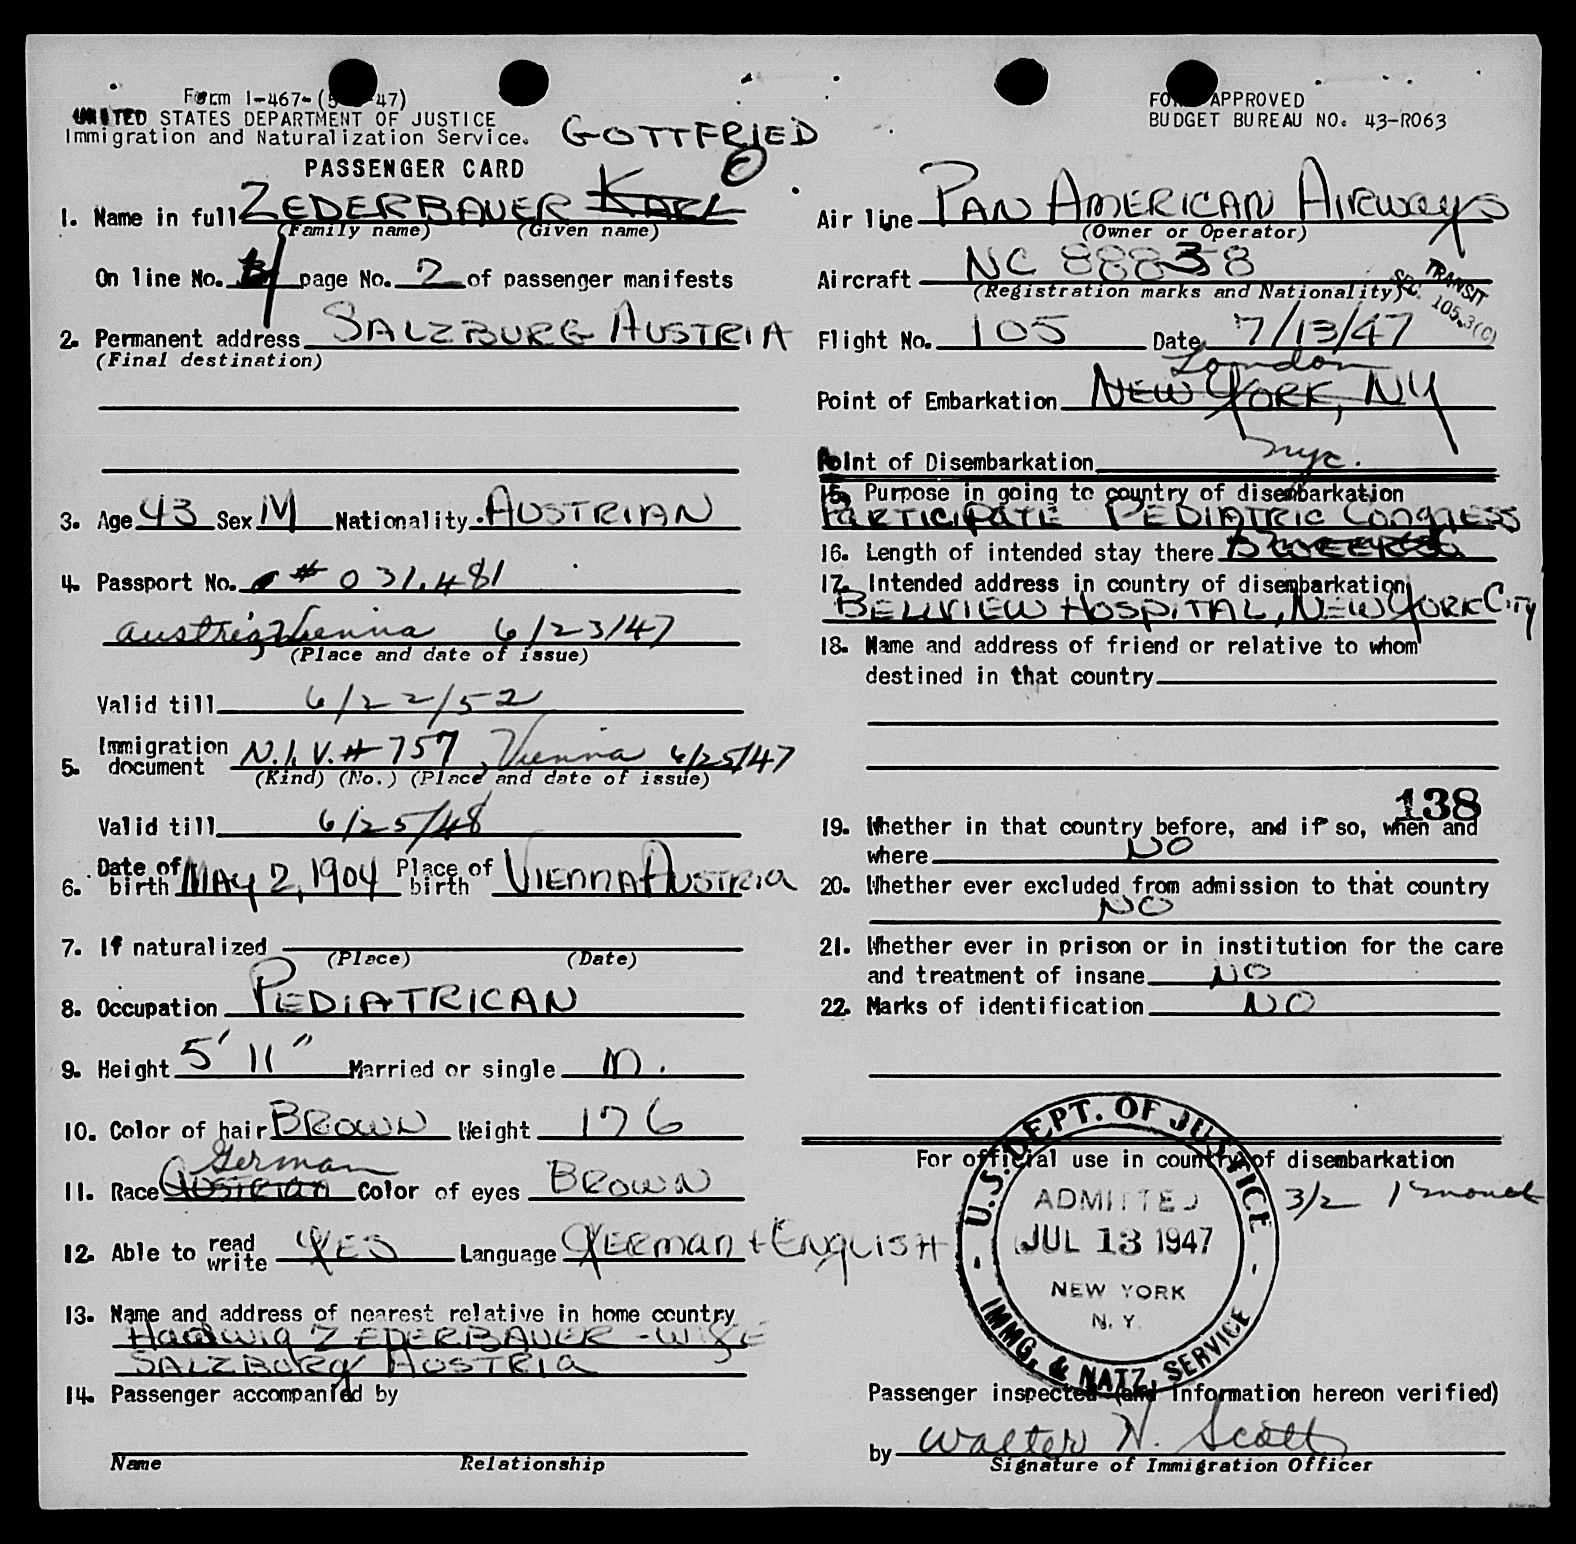 Form I-467-(5- -47)
UNITED STATES DEPARTMENT OF JUSTICE
Immigration and Naturalization Service.
GOTTFRIED
PASSENGER CARD
1. Name in full ZEDERBAUER KARL
(Family name) (Given name)
On line No. page No. 2 of passenger manifests
2. Permanent address SALZBURG AUSTRIA
(Final destination)
3. Age 43 Sex M Nationality AUSTRIAN
4. Passport No. # 031,481
Austria Vienna 6/23/47
(Place and date of issue)
Valid till 6/22/52
5. Immigration document N.I.V. # 757, Vienna 6/25/47
(Kind) (No.) (Place and date of issue)
Valid till 6/25/48
6. Date of birth MAY 2, 1904 Place of birth VIENNA AUSTRIA
7. If naturalized
(Place) (Date)
8. Occupation PEDIATRICAN
9. Height 5' 11" Married or single M.
10. Color of hair BROWN Weight 176
German
11. Race AUSTRIAN Color of eyes BROWN
12. Able to read write YES Language GERMAN + ENGLISH
13. Name and address of nearest relative in home country
HADWIG ZEDERBAUER - WIFE
SALZBURG AUSTRIA
14. Passenger accompanied by
Name Relationship
FORM APPROVED
BUDGET BUREAU NO. 43-R063
Air line PAN AMERICAN AIRWAYS
(Owner or Operator)
Aircraft NC 88838
(Registration marks and Nationality)
TRANSIT
SEC. 105.3(C)
Flight No. 105 Date 7/13/47
London
Point of Embarkation NEW YORK, NY
Point of Disembarkation nyc.
15. Purpose in going to country of disembarkation
PARTICIPATE PEDIATRIC CONGRESS
16. Length of intended stay there
17. Intended address in country of disembarkation
BELLVIEW HOSPITAL, NEW YORK CITY
18. Name and address of friend or relative to whom
destined in that country
138
19. Whether in that country before, and if so, when and
where NO
20. Whether ever excluded from admission to that country
NO
21. Whether ever in prison or in institution for the care
and treatment of insane NO
22. Marks of identification NO
For official use in country of disembarkation
3/2 1 month
U.S. DEPT. OF JUSTICE
ADMITTED
JUL 13 1947
NEW YORK
N. Y.
IMMG. & NATZ. SERVICE
Passenger inspected (and information hereon verified)
by Walter N. Scott
Signature of Immigration Officer